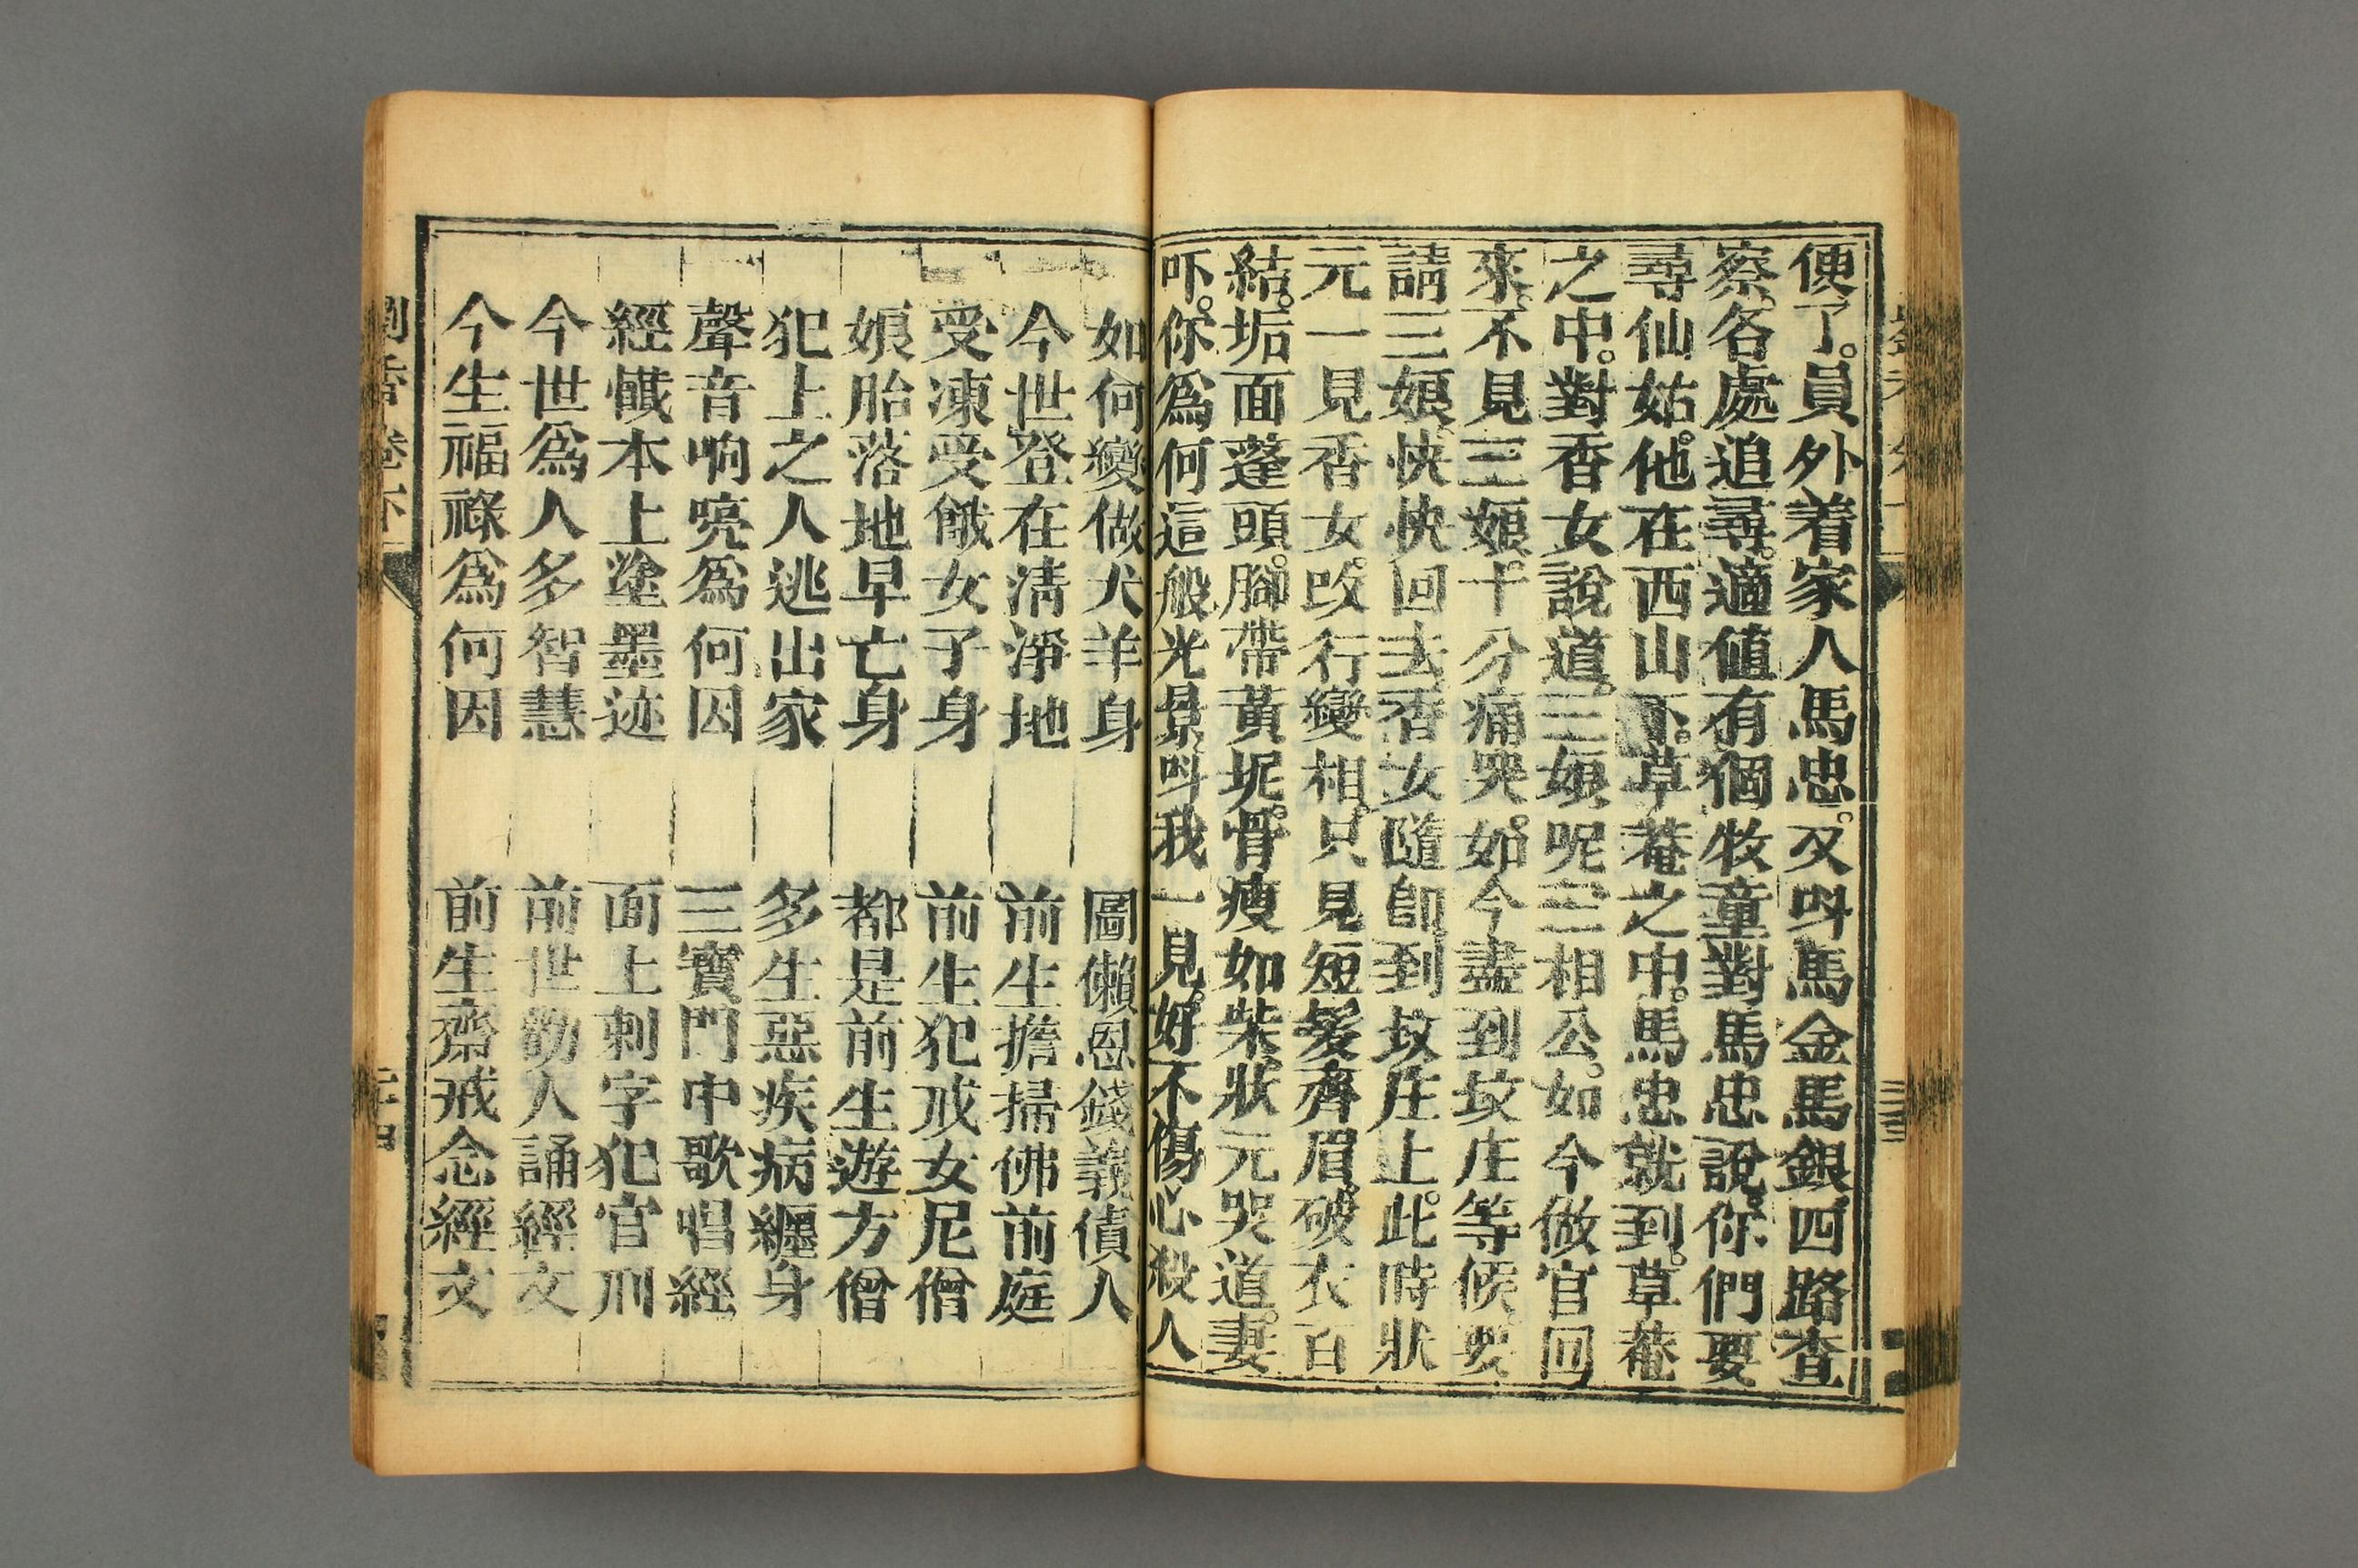 便了。員外着家人馬忠。又呌馬金馬銀四路查
察。各處追尋。適値有個牧童對馬忠說。你們要
尋仙姑。他在西山下。草菴之中。馬忠就到。草菴
之中。對香女說道。三娘呢三相公。如今做官回
來。不見三娘。十分痛哭。如今盡到坟庄等候。要
請三娘。快快回去。香女隨卽到坟庄上。此時狀
元一見香女。改行變相。只見短髮齊眉。破衣百
結。垢面蓬頭。腳帶黃坭。骨瘦如柴。狀元哭道。妻
吓。你爲何這般光景。呌我一見。好不傷心殺人
如何變做犬羊身　圖懶恩錢義債人
今世登在淸淨地　前生擔掃佛前庭
受凍受餓女子身　前生犯戒女尼僧
娘胎落地早亡身　都是前生遊方僧
犯上之人逃出家　多生惡疾病纏身
聲音响喨爲何因　三寶門中歌唱經
經懺本上塗墨迹　面上刺字犯官刑
今世爲人多智慧　前世勸人誦經文
今生福祿爲何因　前生齋戒念經文
劉香卷下
二十四